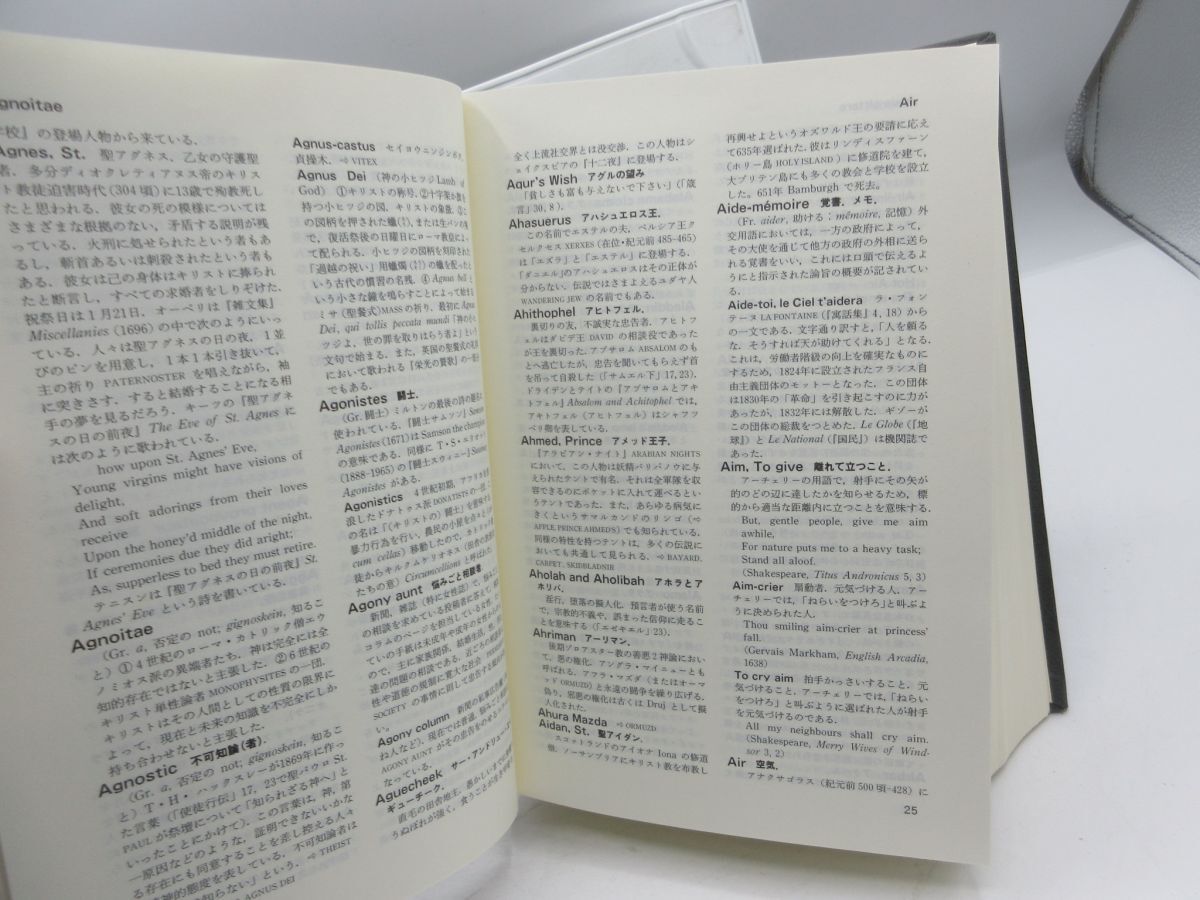 gnoitae
校』の登場人物から来ている.
Agnes, St. 聖アグネス, 乙女の守護聖
者. 多分ディオクレティアヌス帝のキリス
ト教徒迫害時代(304頃)に13歳で殉教し
たと思われる. 彼女の死の模様については
さまざまな根拠のない, 矛盾する説明が残
っている. 火刑に処せられたという者もあ
るし, 斬首あるいは刺殺されたという者も
ある. 彼女は己の身体はキリストに捧られ
たと断言し, すべての求婚者をしりぞけた.
祝祭日は1月21日. オーベリは『雑文集』
Miscellanies (1696) の中で次のようにいっ
ている. 人々は聖アグネスの日の夜, 1並
びのピンを用意し, 1本1本引き抜いて,
主の祈り PATERNOSTER を唱えながら, 袖
に突きさす. すると結婚することになる相
手の夢を見るだろう. キーツの『聖アグネ
スの日の前夜』The Eve of St. Agnes に
は次のように歌われている.
how upon St. Agnes' Eve,
Young virgins might have visions of
delight,
And soft adorings from their loves
receive
Upon the honey'd middle of the night,
If ceremonies due they did aright;
As, supperless to bed they must retire.
テニスンは『聖アグネスの日の前夜』St.
Agnes' Eve という詩を書いている.
Agnoitae
(Gr. a, 否定の not; gignoskein, 知るこ
と) ①4世紀のローマ・カトリック僧エウ
ノミオス派の異端者たち. 神は完全には全
知的存在ではないと主張した. ②6世紀の
キリスト単性論者 MONOPHYSITES の一団.
キリストはその人間としての性質の限界に
よって, 現在と未来の知識を不完全にしか
持ち合わせないと主張した.
Agnostic 不可知論(者).
(Gr. a, 否定の not; gignoskein, 知るこ
と) T・H・ハックスレーが1869年に作っ
た言葉(「使徒行伝」17, 23で聖パウロ St.
PAUL が祭壇について「知られざる神へ」と
いったことにかけて). この言葉は, 神, 第
一原因などのような, 証明できないいかな
る存在にも同意することを差し控える人々
の精神的態度を表している. 不可知論者は
「知らない」という. ⇨ THEIST
AGNUS DEI
Agnus-castus セイヨウニンジンボク,
貞操木. ⇨ VITEX
Agnus Dei (神の小ヒツジ Lamb of
God) ①キリストの称号. ②十字架か旗を
持つ小ヒツジの図. キリストの象徴. ③こ
の図柄を押された蠟, または生パンの
で, 復活祭後の日曜日にローマ教皇によっ
て配られる. 小ヒツジの図柄を刻印された
「過越の祝い」用蠟燭の蠟を配ったと
いう古代の慣習の名残. ④ Agnus bell と
いう小さな鐘を鳴らすことによって始まる
ミサ (聖餐式) MASS の祈り. 最初に Agnus
Dei, qui tollis peccata mundi「神の小ヒ
ツジよ, 世の罪を取りはらう者よ」という
文句で始まる. また, 英国の聖餐式の礼拝
において歌われる「栄光の賛歌」の一部分
でもある.
Agonistes 闘士.
(Gr. 闘士) ミルトンの最後の詩の題名に
使われている.『闘士サムソン』Samson
Agonistes (1671) は Samson the champion
の意味である. 同様に T・S・エリオット
(1888-1965) の『闘士スウィニー』Sweeney
Agonistes がある.
Agonistics 4世紀初期, アフリカを放
浪したドナトゥス派 DONATISTS の一団. こ
の名は「(キリストの)闘士」を意味する.
暴力行為を行い, 農民の小屋を点々と(cir-
cum cellas) 移動したので, カトリック教
徒からキルクムケリオネス (田舎の放浪者
たちの意) Circumcellions と呼ばれた.
Agony aunt 悩みごと相談者
新聞, 雑誌 (特に女性誌) で, 悩みごと
の相談を求めている投稿者に答えて,
コラムのページを担当している女性. たい
ていの手紙は未成年や成年の女性からのも
ので, 主に家族関係, 結婚生活, 性, 友
達の問題の相談である. 近ごろの
性や道徳の規制に寛大な社会 PERMISSIVE
SOCIETY の事情に則して忠告する
い.
Agony column 新聞の私事広告欄(尋
ね人など). 現在では普通, 悩みごと
AGONY AUNT がその忠告をのせる
なっている.
Aguecheek サー・アンドリュー・エイ
ギューチーク.
直毛の田舎地主. 愚かしいまでの
うぬぼれが強く, 食うことが生き甲斐で
Air
全く上流社交界とは没交渉. この人物はシ
ェイクスピアの『十二夜』に登場する.
Aqur's Wish アグルの望み
「貧しさも富も与えないで下さい」(「箴
言」30, 8).
Ahasuerus アハシュエロス王.
この名前でエステルの夫, ペルシア王ク
セルクセス XERXES (在位・紀元前485-465)
は「エズラ」と「エステル」に登場する.
「ダニエル」のアハシュエロスはその正体が
分からない. 伝説ではさまよえるユダヤ人
WANDERING JEW の名前でもある.
Ahithophel アヒトフェル.
裏切りの友, 不誠実な忠告者. アヒトフ
ェルはダビデ王 DAVID の相談役であった
が王を裏切った. アブサロム ABSALOM のも
とへ逃亡したが, 忠告を聞いてもらえず首
を吊って自殺した (「サムエル下」17, 23).
ドライデンとテイトの『アブサロムとアキ
トフェル』Absalom and Achitophel では,
アキトフェル (アヒトフェル) はシャフツ
ベリ卿を表している.
Ahmed, Prince アメッド王子.
『アラビアン・ナイト』ARABIAN NIGHTS
において, この人物は妖精パリバノウに与
えられたテントで有名. それは全軍隊を収
容できるのにポケットに入れて運べるとい
うテントであった. また, あらゆる病気に
きくというサマルカンドのリンゴ (⇨
APPLE, PRINCE AHMED'S) でも知られている.
同様の特性を持つテントは, 多くの伝説に
おいても共通して見られる. ⇨ BAYARD,
CARPET, SKIDBLADNIR
Aholah and Aholibah アホラとア
ホリバ.
淫行, 堕落の擬人化. 預言者が使う名前
で, 宗教的不義や, 誤まった信仰に走るこ
とを意味する (「エゼキエル」23).
Ahriman アーリマン.
後期ゾロアスター教の善悪2神論におい
て, 悪の権化. アングラ・マイニューとも
呼ばれる. アフラ・マズダ (またはオーマ
ッド ORMUZD) と永遠の闘争を繰り広げる.
偽り, 邪悪の権化は古くは Druj として擬
人化された.
Ahura Mazda ⇨ ORMUZD
Aidan, St. 聖アイダン.
スコットランドのアイオナ Iona の修道
僧. ノーサンブリアにキリスト教を布教し
再興せよというオズワルド王の要請に応え
て635年選ばれた. 彼はリンディスファーン
(ホリー島 HOLY ISLAND) に修道院を建て,
大ブリテン島にも多くの教会と学校を設立
した. 651年 Bamburgh で死去.
Aide-mémoire 覚書. メモ.
(Fr. aider, 助ける; mémoire, 記憶) 外
交用語においては, 一方の政府によって,
その大使を通じて他方の政府の外相に送ら
れる覚書をいい, これには口頭で伝えるよ
うにと指示された論旨の概要が記されてい
る.
Aide-toi, le Ciel t'aidera ラ・フォン
テーヌ LA FONTAINE (『寓話集』4, 18) から
の一文である. 文字通り訳すと,「人を頼る
な, そうすれば天が助けてくれる」となる.
これは, 労働者階級の向上を確実なものに
するため, 1824年に設立されたフランス自
由主義団体のモットーとなった. この団体
は1830年の「革命」を引き起こすのに力が
あったが, 1832年には解散した. ギゾーが
この団体の総裁をつとめた. Le Globe (『地
球』) と Le National (『国民』) は機関誌で
あった.
Aim, To give 離れて立つこと.
アーチェリーの用語で, 射手にその矢が
的のどの辺に達したかを知らせるため, 標
的から適当な距離内に立つことを意味する.
But, gentle people, give me aim
awhile,
For nature puts me to a heavy task;
Stand all aloof.
(Shakespeare, Titus Andronicus 5, 3)
Aim-crier 扇動者, 元気づける人. ア
ーチェリーでは,「ねらいをつけろ」と叫ぶよ
うに決められた人.
Thou smiling aim-crier at princess'
fall.
(Gervais Markham, English Arcadia,
1638)
To cry aim 拍手かっさいすること. 元
気づけること. アーチェリーでは,「ねらい
をつけろ」と叫ぶように選ばれた人が射手
を元気づけるのである.
All my neighbours shall cry aim.
(Shakespeare, Merry Wives of Wind-
sor 3, 2)
Air 空気.
アナクサゴラス (紀元前500頃-428) に
25